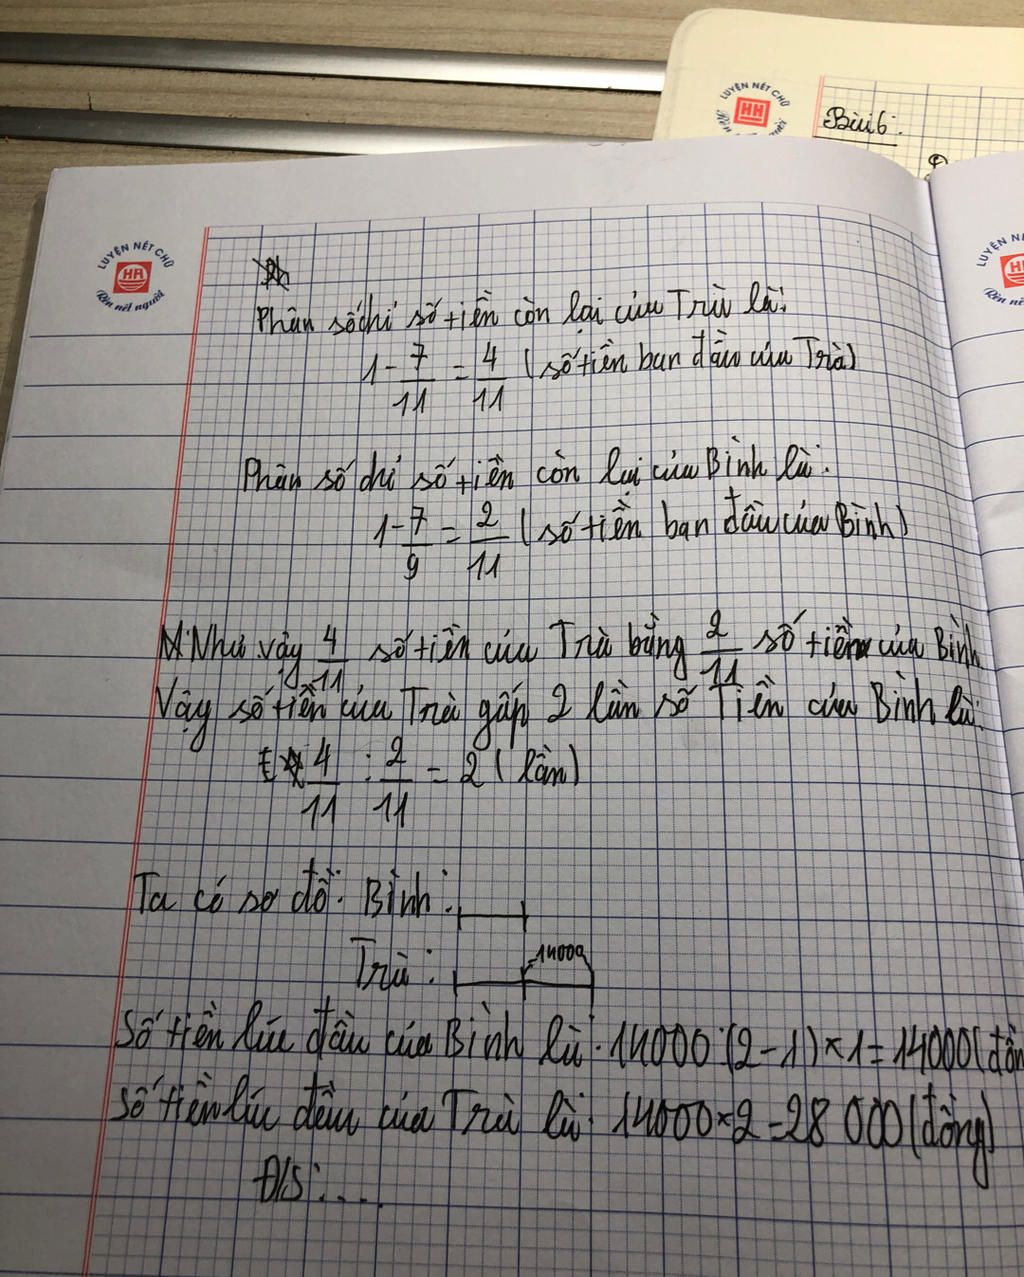 LUYỆN NẾT CHỮ
HH
Bài 6:
LUYỆN NẾT CHỮ
HA
Rèn nết người
Phân số chỉ số tiền còn lại của Trà là:
1 - 7/11 = 4/11 (số tiền ban đầu của Trà)
Phân số chỉ số tiền còn lại của Bình là:
1 - 7/9 = 2/11 (số tiền ban đầu của Bình)
Như vậy 4/11 số tiền của Trà bằng 2/11 số tiền của Bình
Vậy số tiền của Trà gấp 2 lần số Tiền của Bình là:
4/11 : 2/11 = 2 (lần)
Ta có sơ đồ: Bình:
14000
Trà:
Số tiền lúc đầu của Bình là: 14000:(2-1)×1=14000(đồn
Số tiền lúc đầu của Trà là: 14000×2=28 000(đồng)
Đ/S:....